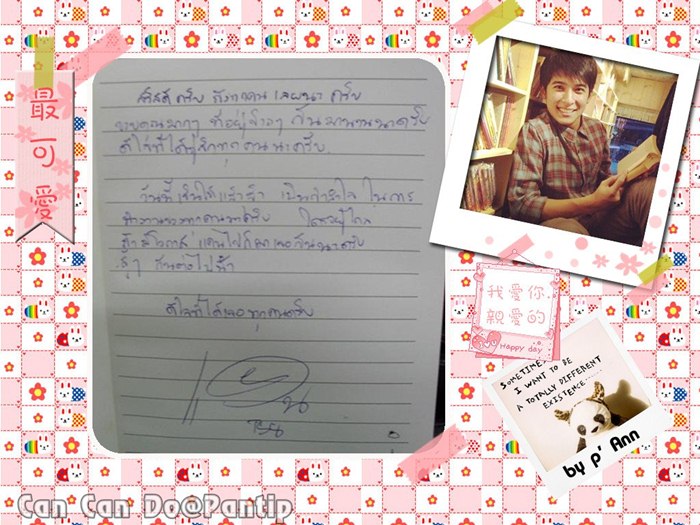 最可愛
สวัสดีครับ ถึงทุกคน เลยนะ ครับ
ขอบคุณมากๆ ที่อยู่ข้างๆ กันมานานนะครับ
ดีใจที่ได้รู้จักทุกคนนะครับ.
วันนี้เห็นให้แล้วน้า เป็นกำลังใจ ในการ
ทำงานของทุกคนนะครับ ใครอยู่ไกล
ถ้ามีโอกาส
กันนะครับ
สู้ๆ กันต่อไปน้า
ดีใจที่ได้เจอทุกคนครับ
我愛你.
親愛的
Happy day
SOMETIMES
I WANT TO BE
A TOTALLY DIFFERENT
EXISTENCE......
by p' Ann
Can Can Do@Pantip